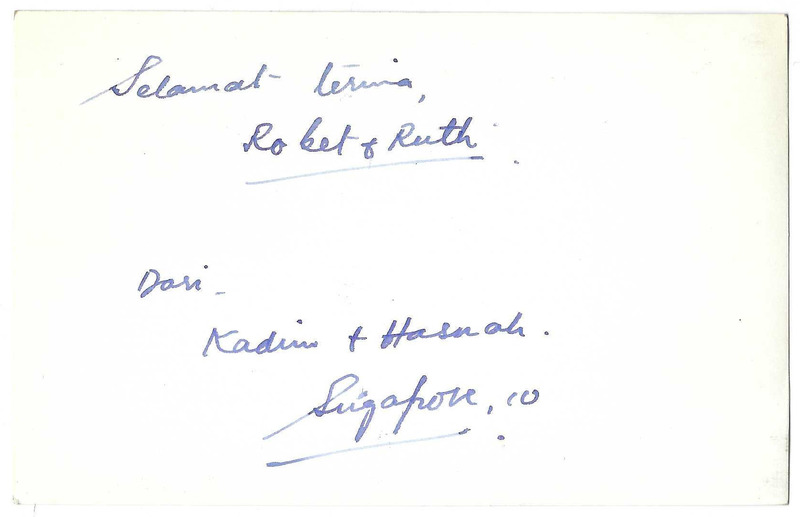 Selamat terima,
Roket & Ruth.
Dari -
Kadim & Hasnah.
Singapore, 10.